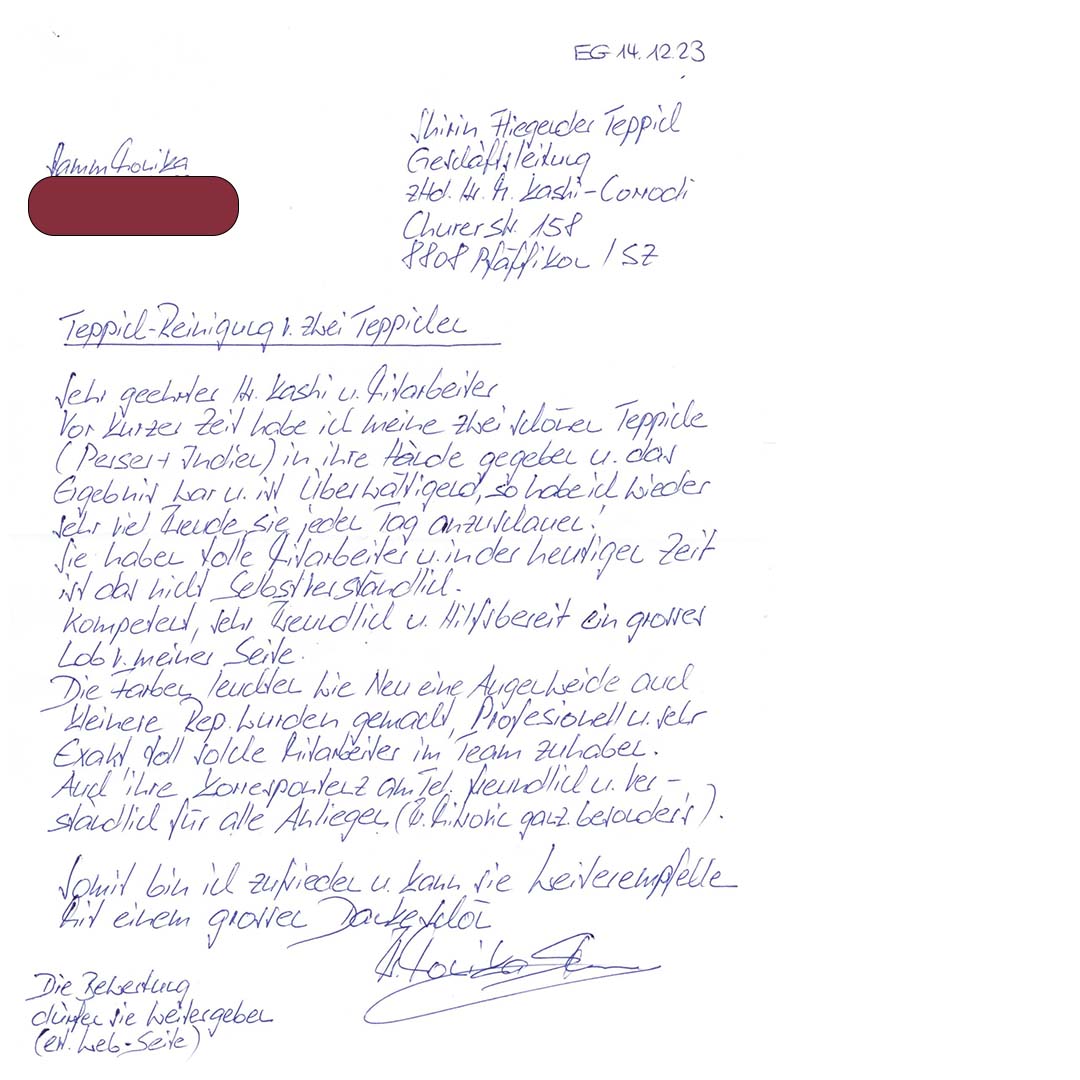 EG 14.12.23
Shirin Fliegender Teppich
Geschäftsleitung
zHd. Hr. M. Kashi-Comodi
Churerstr. 158
8808 Pfäffikon / SZ
Monika
Teppich-Reinigung v. zwei Teppichen
Sehr geehrter Hr. Kashi u. Mitarbeiter
Vor kurzer Zeit habe ich meine zwei schönen Teppiche
(Perser + Indien) in ihre Hände gegeben u. das
Ergebnis war u. ist Überwältigend, so habe ich wieder
sehr viel Freude, sie jeden Tag anzuschauen!
Sie haben tolle Mitarbeiter u. in der heutigen Zeit
ist das nicht Selbstverständlich.
Kompetent, sehr Freundlich u. Hilfsbereit ein grosses
Lob v. meiner Seite.
Die Farben leuchten wie Neu eine Augenweide auch
kleinere Rep. wurden gemacht, Profesionell u. sehr
Exakt, toll solche Mitarbeiter im Team zuhaben.
Auch ihre Korrespontenz am Tel. freundlich u. ver-
ständlich für alle Anliegen ( ganz besonders).
Somit bin ich zufrieden u. kann sie weiterempfelle
Mit einem grossen Dankeschön
Monika
Die Bewertung
dürfen sie weitergeben
(evt. Web-Seite)